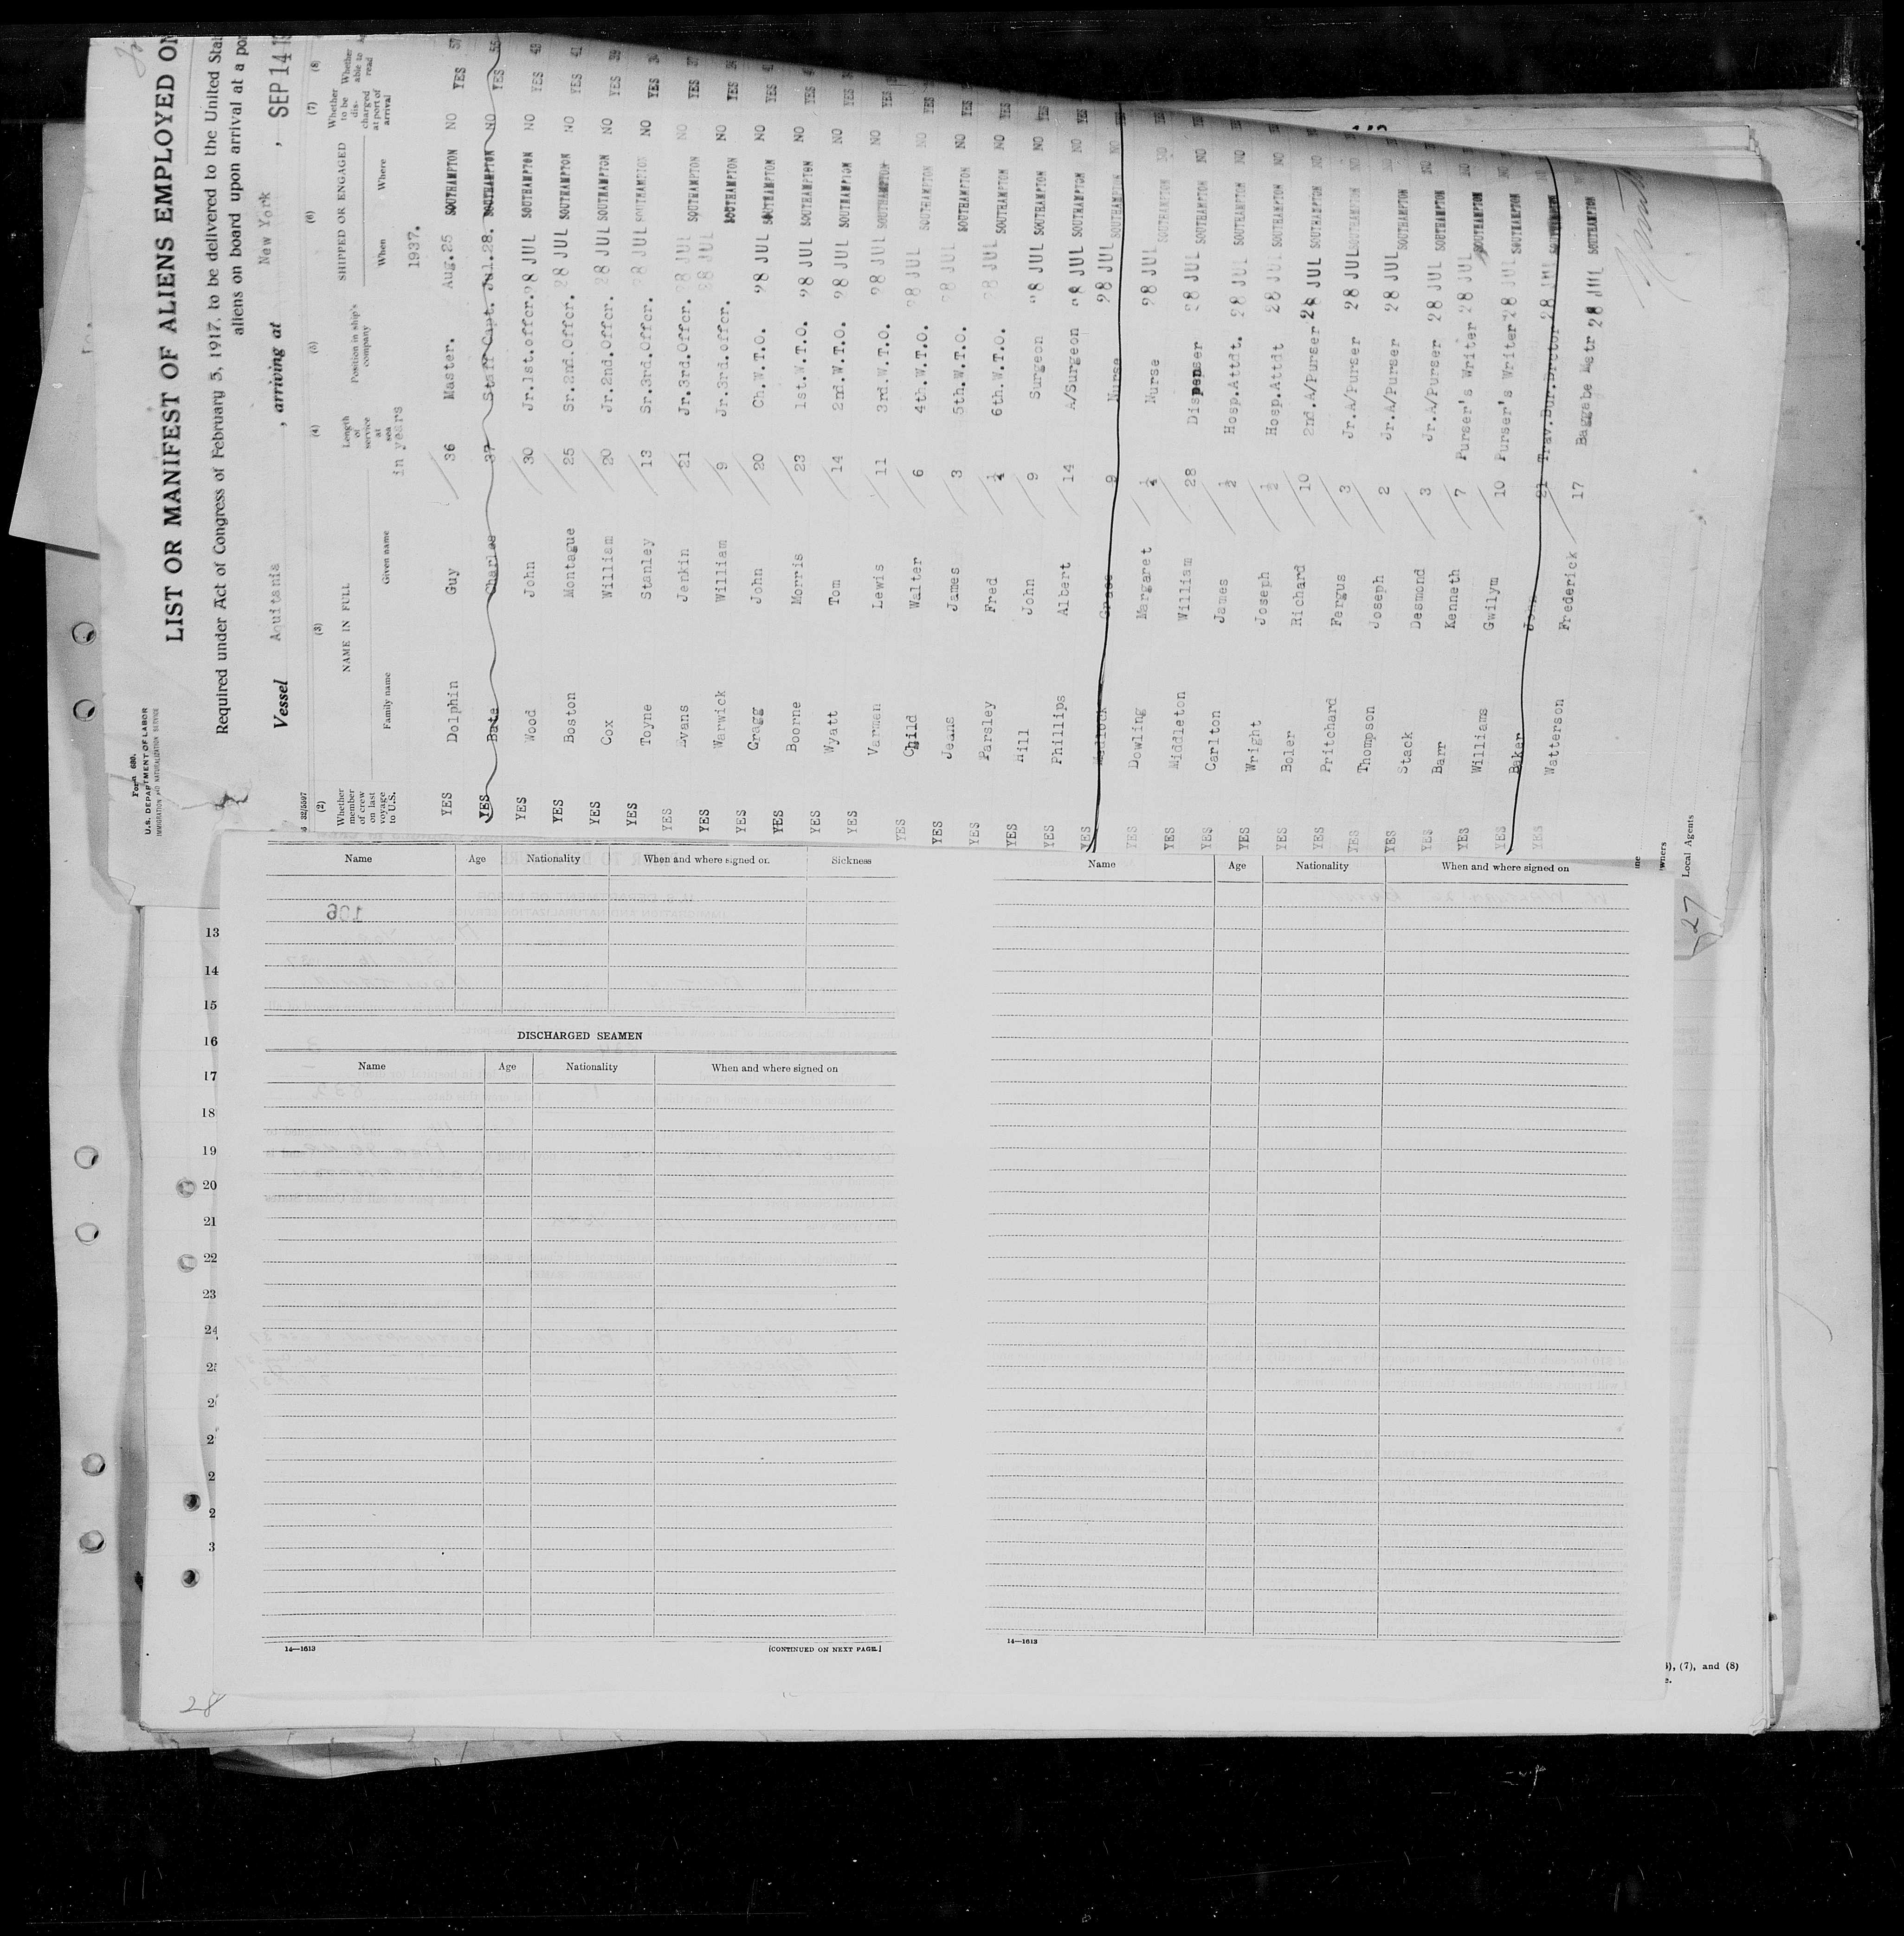 Form 680.
U.S. DEPARTMENT OF LABOR
IMMIGRATION AND NATURALIZATION SERVICE
LIST OR MANIFEST OF ALIENS EMPLOYED ON
Required under Act of Congress of February 5, 1917, to be delivered to the United
aliens on board upon arrival at a
Vessel Aquitania, arriving at New York, SEP 14
(2) (3) (4) (5) (6) (7) (8)
Whether member of crew on last voyage to U.S.
NAME IN FULL
Family name Given name
Length of service at sea
in years
Position in ship's company
SHIPPED OR ENGAGED
When Where
Whether to be discharged at port of arrival
Whether able to read
1937.
YES Dolphin Guy 36 Master. Aug.25 SOUTHAMPTON NO YES 57
YES Bate Charles 37 Staff Capt. Jul.28. SOUTHAMPTON NO YES 55
YES Wood John 30 Jr.1st.offcr. 28 JUL SOUTHAMPTON NO YES
YES Boston Montague 25 Sr.2nd.Offcr. 28 JUL SOUTHAMPTON NO YES 41
YES Cox William 20 Jr.2nd.Offcr. 28 JUL SOUTHAMPTON NO YES 39
YES Toyne Stanley 13 Sr.3rd.Offcr. 28 JUL SOUTHAMPTON NO YES
YES Evans Jenkin 21 Jr.3rd.Offcr. 28 JUL SOUTHAMPTON NO YES
YES Warwick William 9 Jr.3rd.offcr. 28 JUL SOUTHAMPTON NO YES
YES Gragg John 20 Ch.W.T.O. 28 JUL SOUTHAMPTON NO YES
YES Boorne Morris 23 1st.W.T.O. 28 JUL SOUTHAMPTON NO YES
YES Wyatt Tom 14 2nd.W.T.O. 28 JUL SOUTHAMPTON NO YES
YES Varmen Lewis 11 3rd.W.T.O. 28 JUL SOUTHAMPTON NO YES
YES Child Walter 6 4th.W.T.O. 28 JUL SOUTHAMPTON NO YES
YES Jeans James 3 5th.W.T.O. 28 JUL SOUTHAMPTON NO YES
YES Parsley Fred ¼ 6th.W.T.O. 28 JUL SOUTHAMPTON NO YES
YES Hill John 9 Surgeon 28 JUL SOUTHAMPTON NO YES
YES Phillips Albert 14 A/Surgeon 28 JUL SOUTHAMPTON NO YES
YES Grace 9 Nurse 28 JUL SOUTHAMPTON NO
YES Dowling Margaret ½ Nurse 28 JUL SOUTHAMPTON NO
YES Middleton William 28 Dispenser 28 JUL SOUTHAMPTON NO
YES Carlton James ½ Hosp.Attdt. 28 JUL SOUTHAMPTON NO
YES Wright Joseph ½ Hosp.Attdt 28 JUL SOUTHAMPTON NO
YES Boler Richard 10 2nd.A/Purser 28 JUL SOUTHAMPTON NO
YES Pritchard Fergus 3 Jr.A/Purser 28 JUL SOUTHAMPTON NO
YES Thompson Joseph 2 Jr.A/Purser 28 JUL SOUTHAMPTON NO
YES Stack Desmond 3 Jr.A/Purser 28 JUL SOUTHAMPTON NO
YES Barr Kenneth 7 Purser's Writer 28 JUL SOUTHAMPTON NO
YES Williams Gwilym 10 Purser's Writer 28 JUL SOUTHAMPTON NO
YES Baker John 21 Trav.Bur.Drctor 28 JUL SOUTHAMPTON
Watterson Frederick 17 Baggabe Mstr 28 JUL SOUTHAMPTON
Local Agents
27
Name Age Nationality When and where signed on Sickness
106
DISCHARGED SEAMEN
Name Age Nationality When and where signed on
14—1613 [CONTINUED ON NEXT PAGE.]
Name Age Nationality When and where signed on
14—1613
13
14
15
16
17
18
19
20
21
22
23
24
(7), and (8)
28